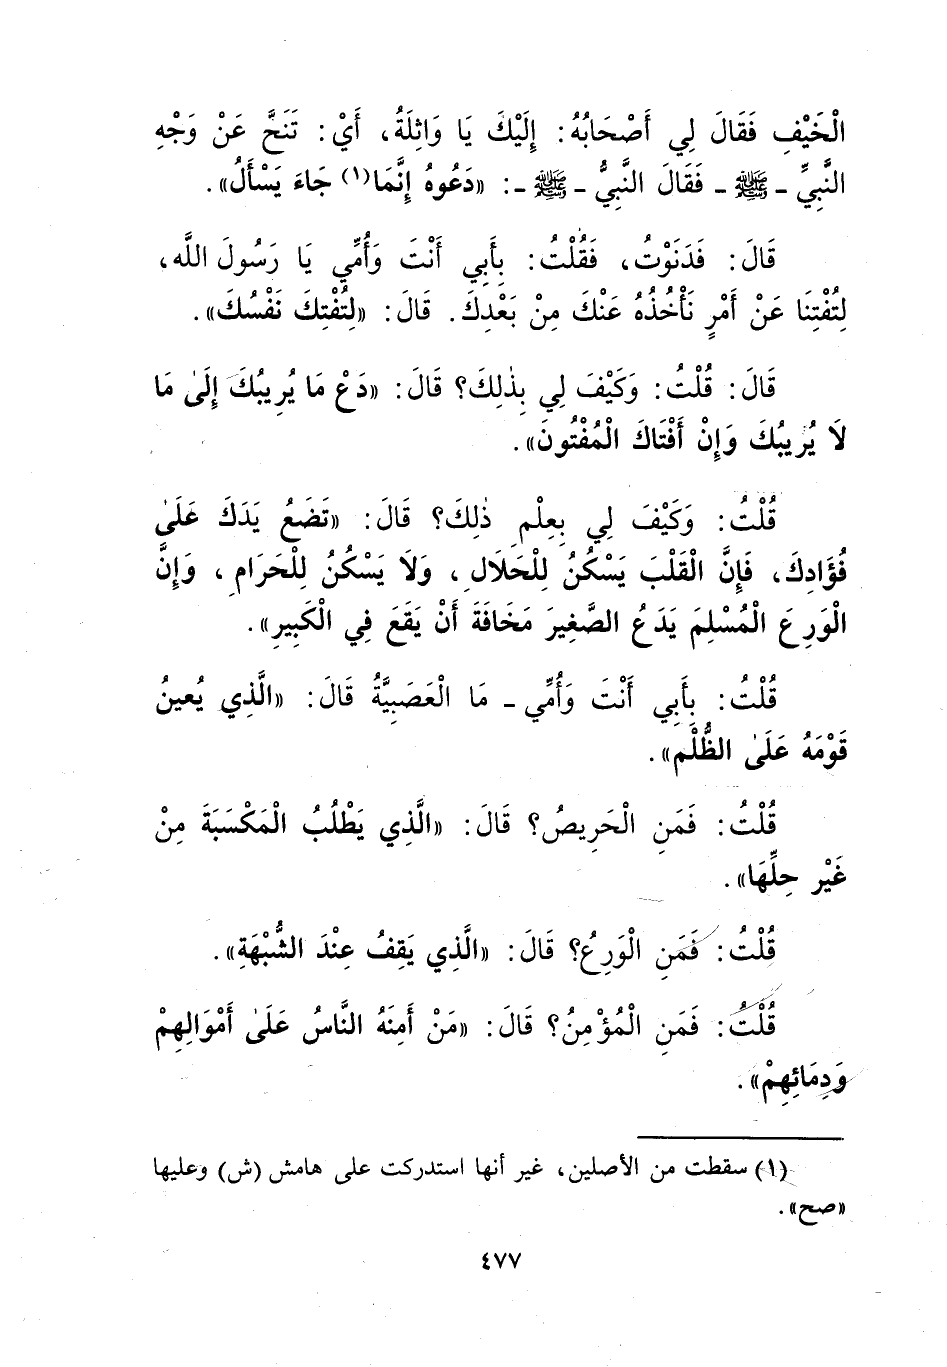 الْخَيْفِ فَقَالَ لِي أَصْحَابُهُ: إِلَيْكَ يَا وَاثِلَةُ، أَيْ: تَنَحَّ عَنْ وَجْهِ
النَّبِيِّ ـ ﷺ ـ فَقَالَ النَّبِيُّ ـ ﷺ ـ: «دَعُوهُ إِنَّمَا(١) جَاءَ يَسْأَلُ».
قَالَ: فَدَنَوْتُ، فَقُلْتُ: بِأَبِي أَنْتَ وَأُمِّي يَا رَسُولَ اللَّه،
لِتُفْتِنَا عَنْ أَمْرٍ نَأْخُذُهُ عَنْكَ مِنْ بَعْدِكَ. قَالَ: «لِتُفْتِكَ نَفْسُكَ».
قَالَ: قُلْتُ: وَكَيْفَ لِي بِذٰلِكَ؟ قَالَ: «دَعْ مَا يُرِيبُكَ إِلَىٰ مَا
لَا يُرِيبُكَ وَإِنْ أَفْتَاكَ الْمُفْتُونَ».
قُلْتُ: وَكَيْفَ لِي بِعِلْمِ ذٰلِكَ؟ قَالَ: «تَضَعُ يَدَكَ عَلَىٰ
فُؤَادِكَ، فَإِنَّ الْقَلْبَ يَسْكُنُ لِلْحَلَالِ، وَلَا يَسْكُنُ لِلْحَرَامِ، وَإِنَّ
الْوَرِعَ الْمُسْلِمَ يَدَعُ الصَّغِيرَ مَخَافَةَ أَنْ يَقَعَ فِي الْكَبِيرِ».
قُلْتُ: بِأَبِي أَنْتَ وَأُمِّي ـ مَا الْعَصَبِيَّةُ قَالَ: «الَّذِي يُعينُ
قَوْمَهُ عَلَىٰ الظُّلْمِ».
قُلْتُ: فَمَنِ الْحَرِيصُ؟ قَالَ: «الَّذِي يَطْلُبُ الْمَكْسَبَةَ مِنْ
غَيْرِ حِلِّهَا».
قُلْتُ: فَمَنِ الْوَرِعُ؟ قَالَ: «الَّذِي يَقِفُ عِنْدَ الشُّبْهَةِ».
قُلْتُ: فَمَنِ الْمُؤْمِنُ؟ قَالَ: «مَنْ أَمِنَهُ النَّاسُ عَلَىٰ أَمْوَالِهِمْ
وَدِمَائِهِمْ».
(١) سقطت من الأصلين، غير أنها استدركت على هامش (ش) وعليها
«صح».
٤٧٧